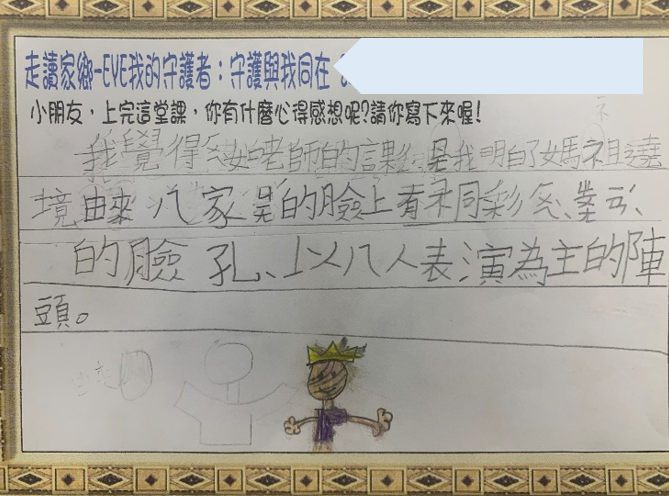 走讀家鄉-EYE我的守護者：守護與我同在
小朋友，上完這堂課，你有什麼心得感想呢?請你寫下來喔!
我覺得 老師的課 是我明白了媽祖遶
境由來、八家 的臉上有不同彩 、
的臉孔、以八人表演為主的陣
頭。